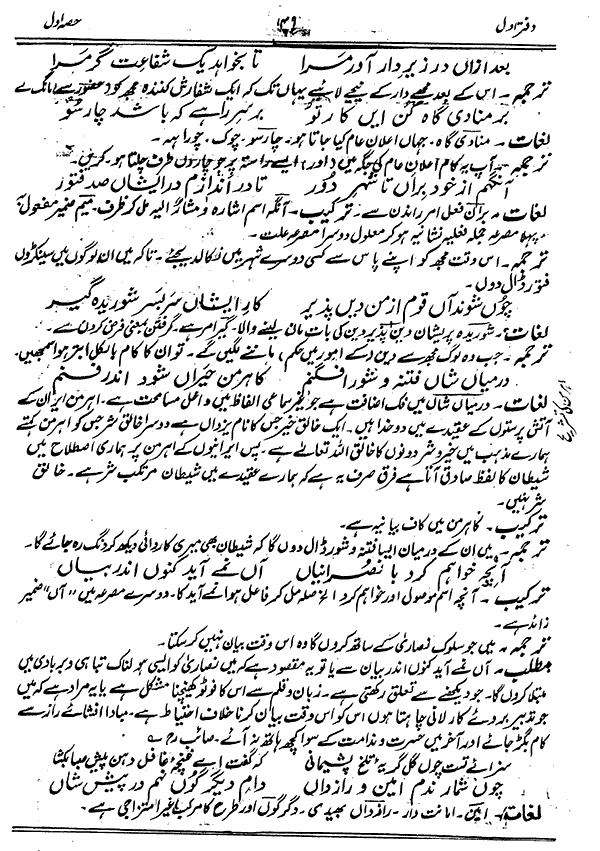 دفتر اول ۱۴۹ حصہ اول
بعد ازاں در زیر دار آور مرا تا بخواہد یک شفاعت گر مرا
ترجمہ۔ اس کے بعد مجھے دار کے نیچے لائیے یہاں تک کہ ایک شفارش کنندہ مجھ کو حضور سے مانگ لے
بر منادی گاہ کن ایں کار تو بر سر راہے کہ باشد چار سو
لغات۔ منادی گاہ، جہاں اعلان عام کیا جاتا ہو۔ چار سو، چوک، چوراہہ۔
ترجمہ۔ آپ یہ کام اعلان عام کی جگہ میں (اور) ایسے راستہ پر جو چاروں طرف چلتا ہو۔ کریں۔
آنگہم از خود براں تا شہر دور تا در اندازم در ایشاں صد فتور
لغات۔ براں فعل امر راندن سے۔ ترکیب۔ آنگہ اسم اشارہ و مشارٌ الیہ مل کر ظرف، میم ضمیر مفعول
پہلا مصرعہ جملہ فعلیہ نشانیہ ہو کر معلول دوسرا مصرعہ علت۔
ترجمہ۔ اس وقت مجھ کو اپنے پاس سے کسی دوسرے شہر میں نکال دیجئے۔ تاکہ میں ان لوگوں میں سینکڑوں
فتور ڈال دوں۔
چوں شوند آں قوم از من دیں پذیر کار ایشاں سر بسر شوریدہ گیر
لغات۔ شوریدہ پریشان دین پذیر دین کی بات مان لینے والا۔ گیر امر ہے۔ گرفتن بمعنی فرض کردن سے۔
ترجمہ۔ جب وہ لوگ مجھ سے دین (کے امور میں حکم) ماننے لگیں گے۔ تو ان کا کام بالکل ابتر ہوا سمجھیں۔
درمیاں شاں فتنہ و شور افگنم کاہرمن حیراں شود اندر فنم
لغات۔ درمیاں شاں میں فک اضافت ہے جو غیر سماعی الفاظ میں داخل مسامحت ہے۔ اہرمن ایران کے
آتش پرستوں کے عقیدے میں دو خدا ہیں۔ ایک خالق خیر جس کا نام یزداں ہے دوسرا خالق شر جس کو اہرمن کہتے
ہمارے مذہب میں خیر و شر دونوں کا خالق اللہ تعالےٰ ہے۔ پس ایرانیوں کے اہرمن پر ہماری اصطلاح میں
شیطان کا لفظ صادق آتا ہے فرق صرف یہ ہے کہ ہمارے عقیدے میں شیطان مرتکب شر ہے۔ خالق
شر نہیں۔
ترکیب۔ کاہرمن میں کاف بیانیہ ہے۔
ترجمہ۔ میں ان کے درمیان ایسا فتنہ و شور ڈال دوں گا کہ شیطان بھی میری کاروائی دیکھ کر دنگ رہ جائے گا۔
آنچہ خواہم کرد با نصرانیاں آں نمے آید کنوں اندر بیاں
ترکیب۔ آنچہ اسم موصول اور خواہم کرد الخ صلہ مل کر فاعل ہوا نمے آید کا۔ دوسرے مصرعہ میں "آں" ضمیر
زائد ہے۔
ترجمہ۔ میں جو سلوک نصاریٰ کے ساتھ کروں گا وہ اس وقت بیان نہیں کر سکتا۔
مطلب۔ آں نمے آید کنوں اندر بیاں سے یا تو یہ مقصود ہے کہ میں نصاریٰ کو ایسی ہولناک تباہی و بربادی میں
مبتلا کروں گا۔ جو دیکھنے سے تعلق رکھتی ہے۔ زبان و قلم سے اس کا فوٹو کھینچنا مشکل ہے یا یہ مراد ہے کہ میں
جو تدبیر بروئے کار لانی چاہتا ہوں اس کو اس وقت بیان کرنا خلاف احتیاط ہے۔ مبادا افشائے راز سے
کام بگڑ جائے اور آخر میں حسرت و ندامت کے سوا کچھ ہاتھ نہ آئے۔ صائب رحمہ
سزائے تست چوں گل گریۂ تلخ پشیمانی کہ گفت اے غنچۂ غافل دہن پیش صبا بکشا
چوں شمار ندم امین و رازداں دام دیگر گوں نہم در پیش شاں
لغات۔ امین۔ امانت دار۔ رازداں بھیدی۔ دگرگوں اور طرح کا مرکب غیر امتزاجی ہے۔